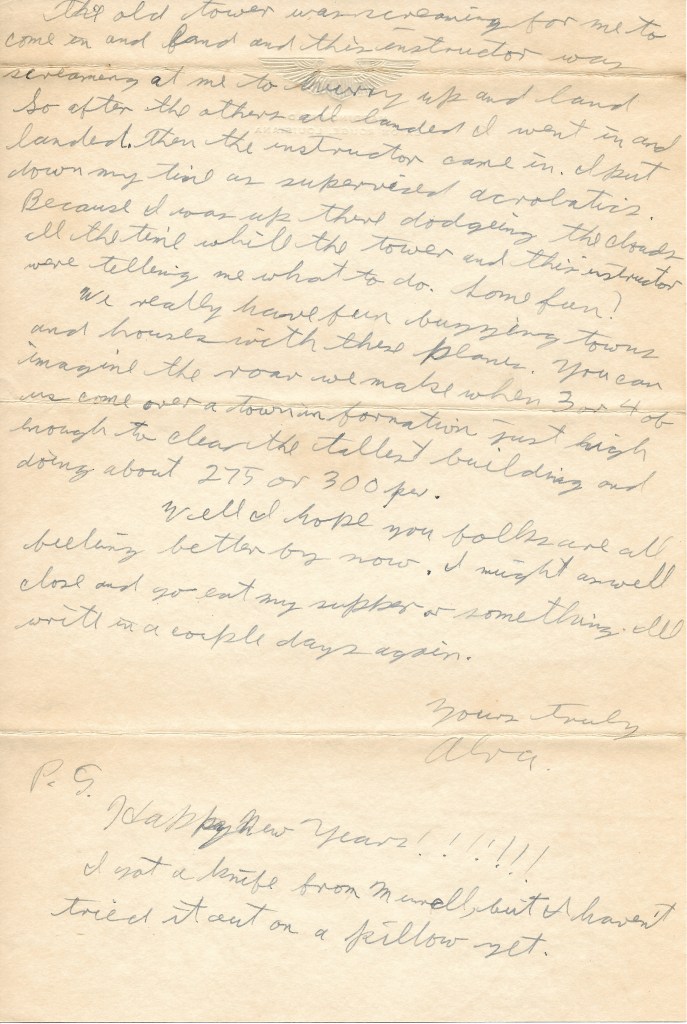 The old tower was screaming for me to
come in and land and this instructor was
screaming at me to hurry up and land
So after the others all landed I went in and
landed. Then the instructor came in. I put
down my time as supervised acrobatics.
Because I was up there dodgeing the clouds
all the time while the tower and this instructor
were telling me what to do. Some fun?
We really have fun buzzing towns
and houses with these planes. You can
imagine the roar we make when 3 or 4 of
us come over a town in formation just high
enough to clear the tallest building and
doing about 275 or 300 per.
Well I hope you folks are all
feeling better by now. I might as well
close and go eat my supper or something. I'll
write in a couple days again.
Yours truly
Alva.
P.S.
Happy New Years!!!!!!!
I got a knife from but I haven't
tried it out on a pillow yet.